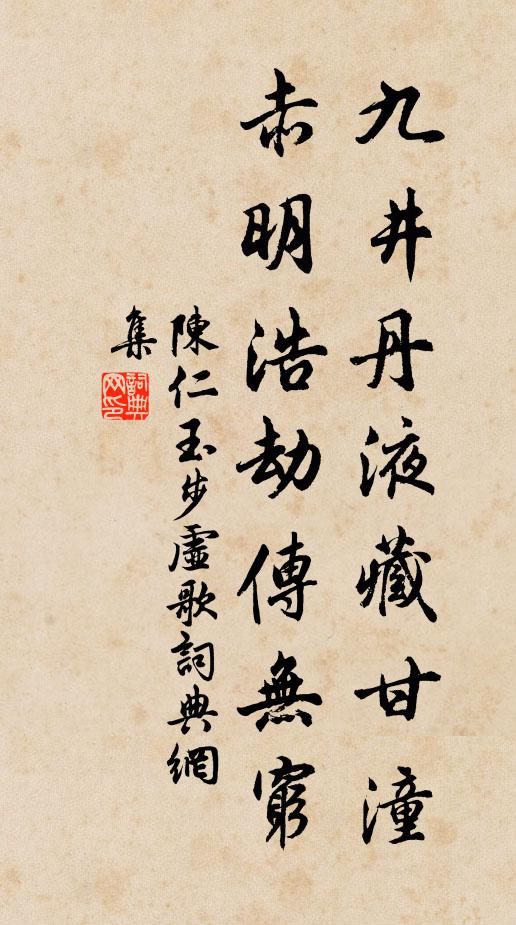 九井丹液藏甘潼
赤明浩劫傳無窮
陳仁玉步虛歌詞典網
集
詞典網印